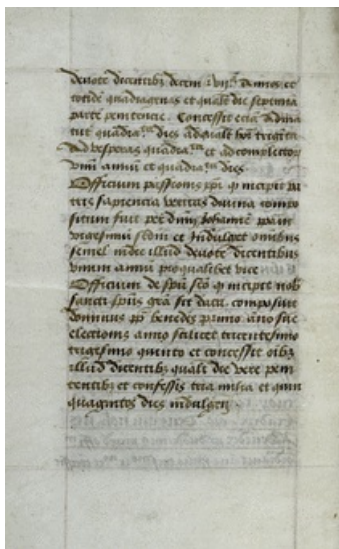 devote dicentibz decem et viiᵗᵉ Annos et
totide quadragenas et qualz die septima
parte penitencie. Concessit ecia Ad ma
tut quadraᵗᵃ dies ad qualz hora triginta
Ad vesperas quadraᵗᵃ et ad complector
vnu annu et quadraᵗᵃ dies
Officium passionis xpi q incipit pa
tris sapiencia veritas divina compo
situm fuit per dnm Iohanne papam
vigesimu scdm et Indulget omnibus
semel in die illud devote dicentibus
vnum annu pro qualibet vice
Officium de spu sco q incipit nob
sancti spus gra sit data composuit
dominus pp benedcs primo ano sue
electionis anno scilicet tricentesimo
trigesimo quinto et concessit oibz
illud dicentibz qualz die vere peni
tentibz et confessis tria milia et quin
quagintos dies indulgen